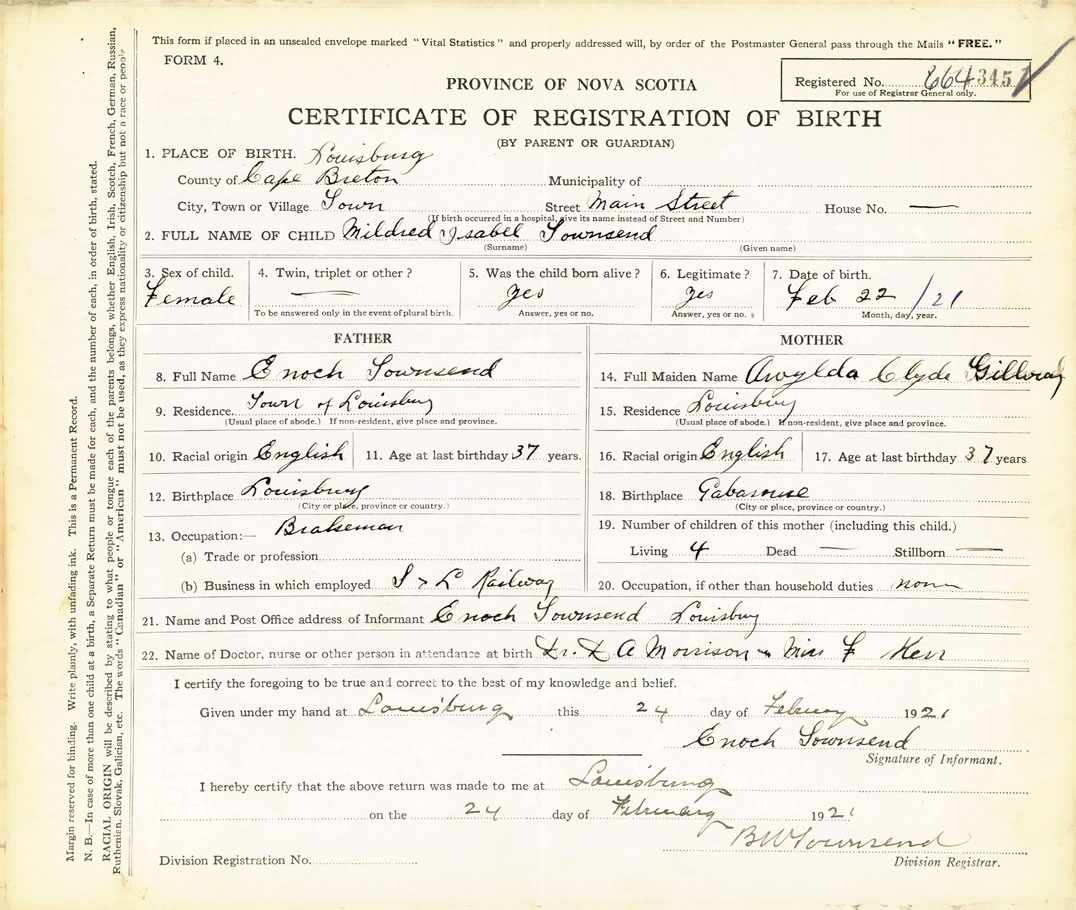 This form if placed in an unsealed envelope marked "Vital Statistics" and properly addressed will, by order of the Postmaster General pass through the Mails "FREE."
FORM 4.
Registered No. 664 3451
For use of Registrar General only.
PROVINCE OF NOVA SCOTIA
CERTIFICATE OF REGISTRATION OF BIRTH
(BY PARENT OR GUARDIAN)
1. PLACE OF BIRTH. Louisburg
County of Cape Breton Municipality of
City, Town or Village Town Street Main Street House No. —
(If birth occurred in a hospital, give its name instead of Street and Number)
2. FULL NAME OF CHILD Mildred Isabel Townsend
(Surname) (Given name)
3. Sex of child. 4. Twin, triplet or other? 5. Was the child born alive? 6. Legitimate? 7. Date of birth.
Female — yes yes Feb 22 /21
To be answered only in the event of plural birth. Answer, yes or no. Answer, yes or no. Month, day, year.
FATHER
8. Full Name Enoch Townsend
9. Residence. Town of Louisburg
(Usual place of abode.) If non-resident, give place and province.
10. Racial origin English 11. Age at last birthday 37 years.
12. Birthplace Louisburg
(City or place, province or country.)
13. Occupation:— Brakeman
(a) Trade or profession
(b) Business in which employed S & L Railway
MOTHER
14. Full Maiden Name Awylda Clyde Gillvray
15. Residence Louisburg
(Usual place of abode.) If non-resident, give place and province.
16. Racial origin English 17. Age at last birthday 37 years
18. Birthplace Gabarouse
(City or place, province or country.)
19. Number of children of this mother (including this child.)
Living 4 Dead — Stillborn —
20. Occupation, if other than household duties none
21. Name and Post Office address of Informant Enoch Townsend Louisburg
22. Name of Doctor, nurse or other person in attendance at birth Dr. D A Morrison & Miss F Kerr
I certify the foregoing to be true and correct to the best of my knowledge and belief.
Given under my hand at Louisburg this 24 day of February 1921
Enoch Townsend
Signature of Informant.
I hereby certify that the above return was made to me at Louisburg
on the 24 day of February 1921
BW Townsend
Division Registration No. Division Registrar.
Margin reserved for binding. Write plainly, with unfading ink. This is a Permanent Record.
N. B.—In case of more than one child at a birth, a Separate Return must be made for each, and the number of each, in order of birth, stated.
RACIAL ORIGIN will be described by stating to what people or tongue each of the parents belongs, whether English, Irish, Scotch, French, German, Russian,
Ruthenien, Slovak, Galician, etc. The words "Canadian" or "American" must not be used, as they express nationality or citizenship but not a race or people